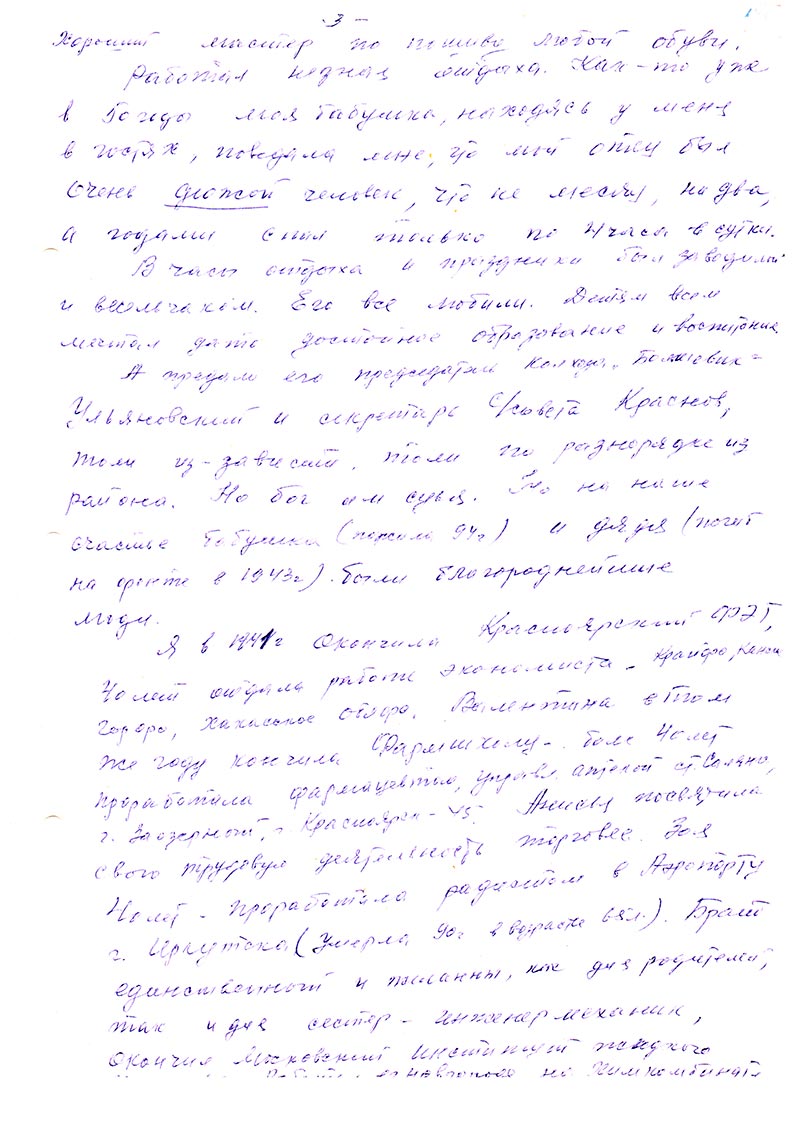 - 3 -
Хороший мастер по пошиву любой обуви.
Работал не зная отдыха. Как-то уже
в годы моя бабушка, находясь у меня
в гостях, поведала мне, что мой отец был
очень дюжой человек, что не месяц, не два,
а годами спал только по 4 часа в сутки.
В часы отдыха и праздники был заводилой
и весельчаком. Его все любили. Детям всем
мечтал дать достойное образование и воспитание.
А предали его председатель колхоза "Большевик"
Ульяновский и секретарь с/совета Краснов,
толи из-зависти, толи по разнорядке из
района. Но бог им судья. Но на наше
счастье бабушка (пожила 94г) и дядя (погиб
на фронте в 1943г) были благороднейшие
люди.
Я в 1941г окончила Красноярский ФЭТ,
40 лет отдала работе экономиста - Крайфо, Канск
Горфо, Хакасское Облфо. Валентина в том
же году кончила Фармшколу - более 40 лет
проработала фармацевтом, управл. аптекой ст. Саляно,
г. Заозерный, г. Красноярск-45. посвятила
свою трудовую деятельность торговле. Зоя
40 лет - проработала радистом в Аэропорту
г. Иркутска (умерла 90г в возрасте 65л.). Брат
единственный и желанный, как для родителей,
так и для сестер - инженер механик,
окончил Московский институт
на Химкомбинате